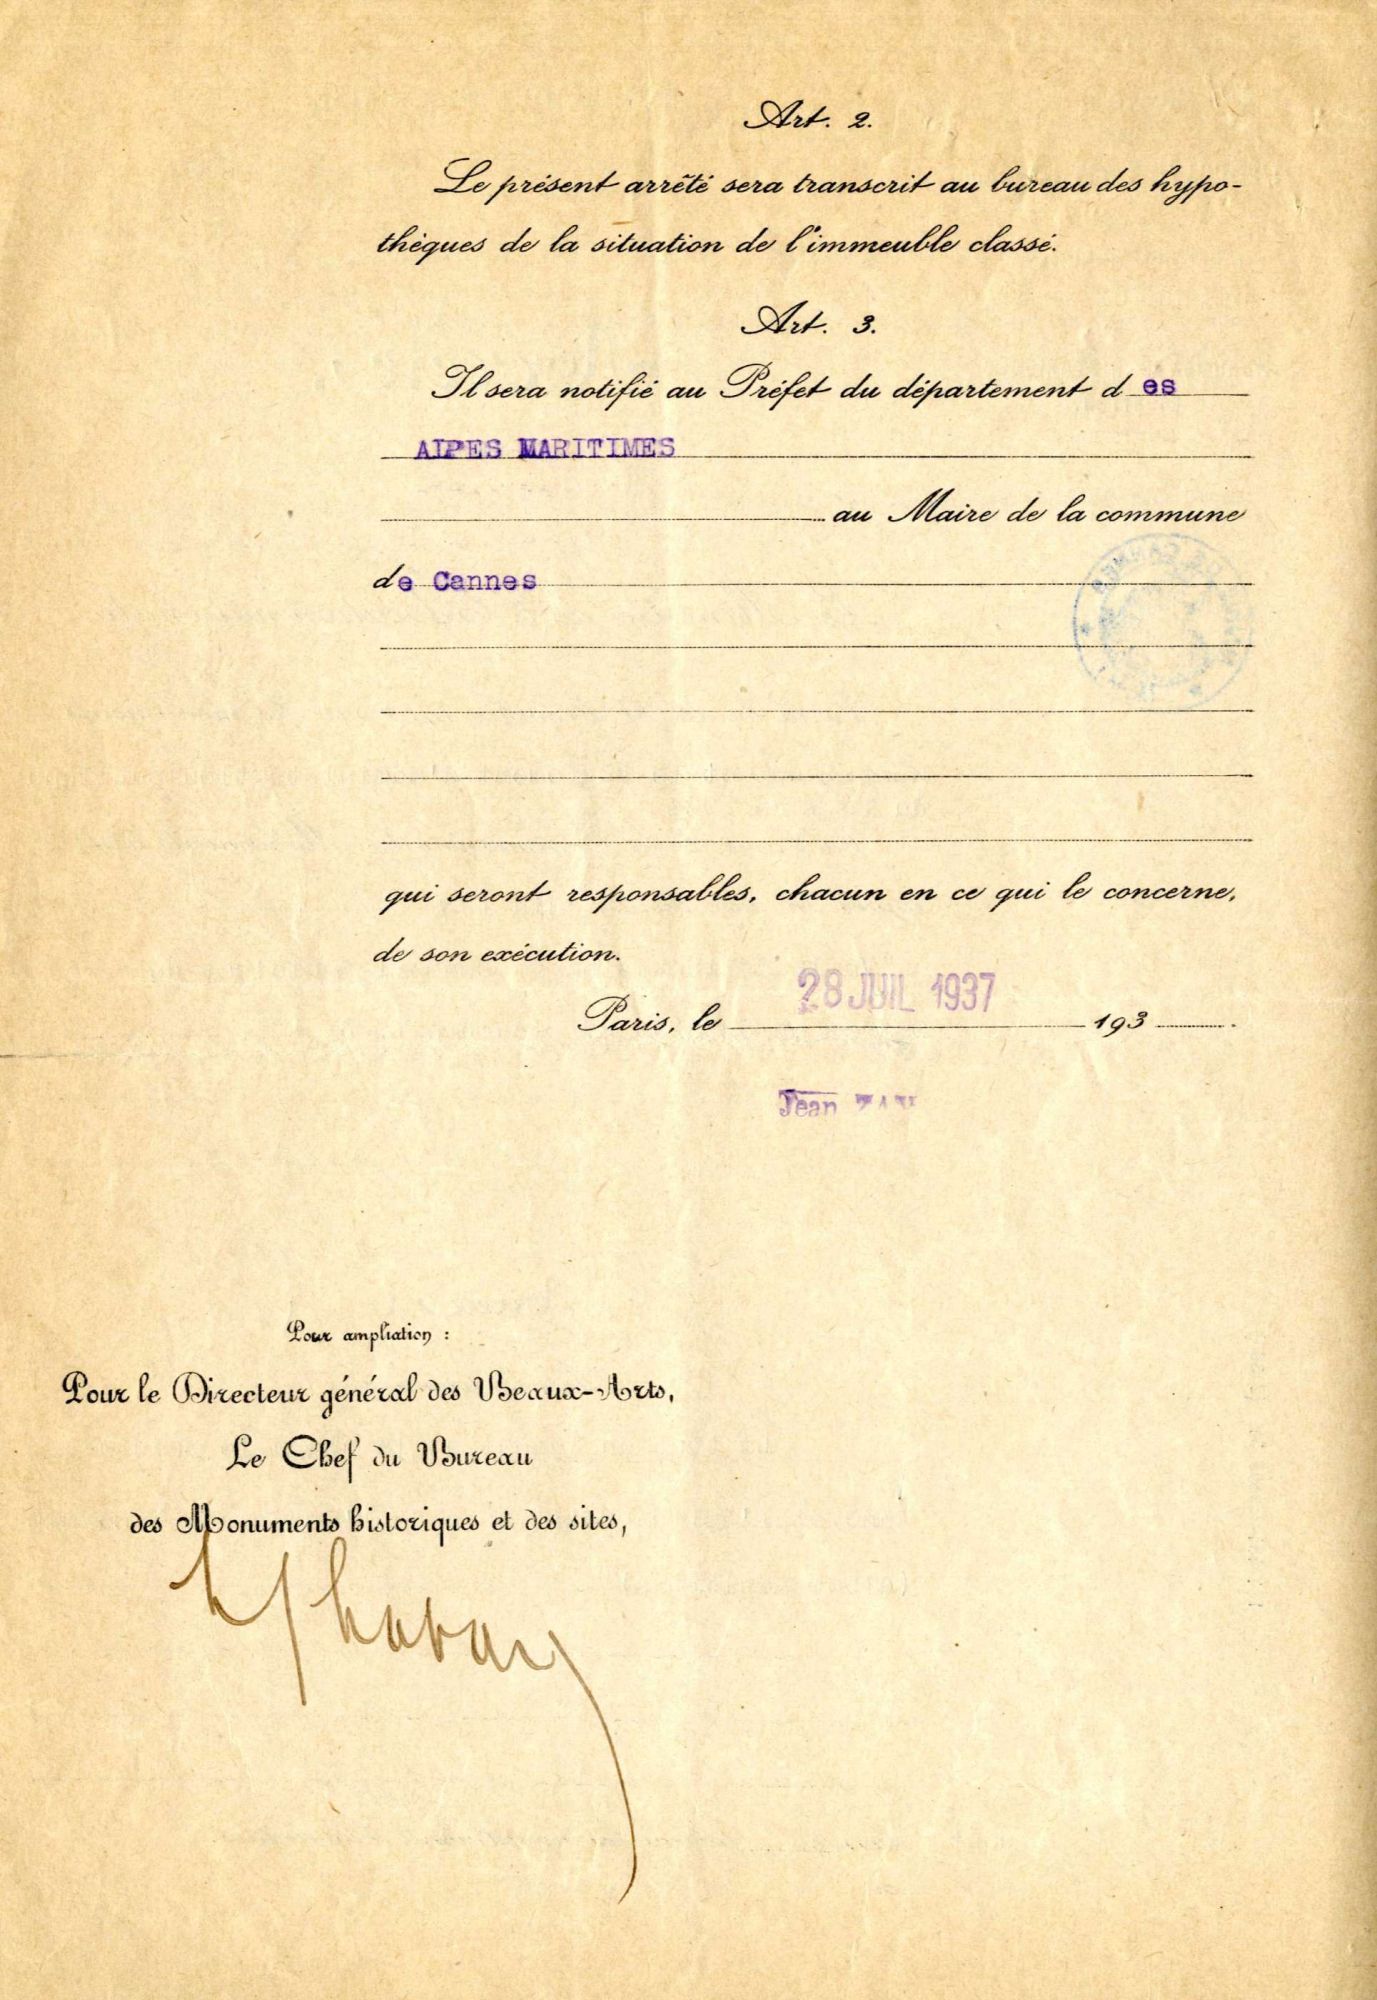 Art. 2.
Le présent arrêté sera transcrit au bureau des hypo-
thèques de la situation de l'immeuble classé.
Art. 3.
Il sera notifié au Préfet du département d es
AlPES MARITIMES
au Maire de la commune
de Cannes
qui seront responsables, chacun en ce qui le concerne,
de son exécution.
28 JUIL 1937
Paris, le 193 .
Jean
Pour ampliation :
Pour le Directeur général des Beaux-Arts,
Le Chef du Bureau
des Monuments historiques et des sites,